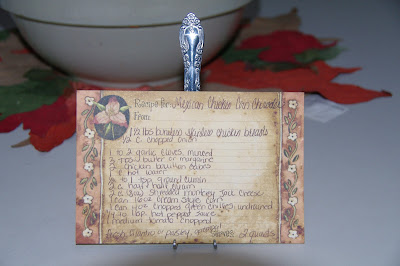 Recipe for: Mexican Chicken Corn Chowder
From:
1 1/2 lbs boneless skinless chicken breasts
1/2 c. chopped onion
1 to 2 garlic cloves, minced
3 Tbsp butter or margarine
chicken bouillon cubes
1 c hot water
to 1 tsp ground cumin
2 c half / half cream
2 c (8oz) shredded monterey jack cheese
1 can 16oz cream style corn
1 can 4oz chopped green chilies, undrained
to 1 tsp hot pepper sauce
1 medium tomato chopped
fresh cilantro or parsley, optional
Serves 2 quarts